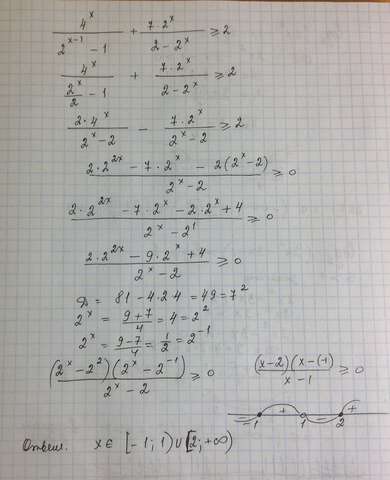 4^x / (2^(x-1) - 1) + 7·2^x / (2 - 2^x) ≥ 2
4^x / (2^x/2 - 1) + 7·2^x / (2 - 2^x) ≥ 2
2·4^x / (2^x - 2) - 7·2^x / (2^x - 2) ≥ 2
(2·2^(2x) - 7·2^x - 2(2^x - 2)) / (2^x - 2) ≥ 0
(2·2^(2x) - 7·2^x - 2·2^x + 4) / (2^x - 2^1) ≥ 0
(2·2^(2x) - 9·2^x + 4) / (2^x - 2) ≥ 0
D = 81 - 4·2·4 = 49 = 7^2
2^x = (9+7)/4 = 4 = 2^2
2^x = (9-7)/4 = 1/2 = 2^-1
(2^x - 2^2)(2^x - 2^-1) / (2^x - 2) ≥ 0 (x-2)(x-(-1) / (x-1) ≥ 0
- -1 + 1 - 2 +
Ответ. x ∈ [-1; 1) ∪ [2; +∞)